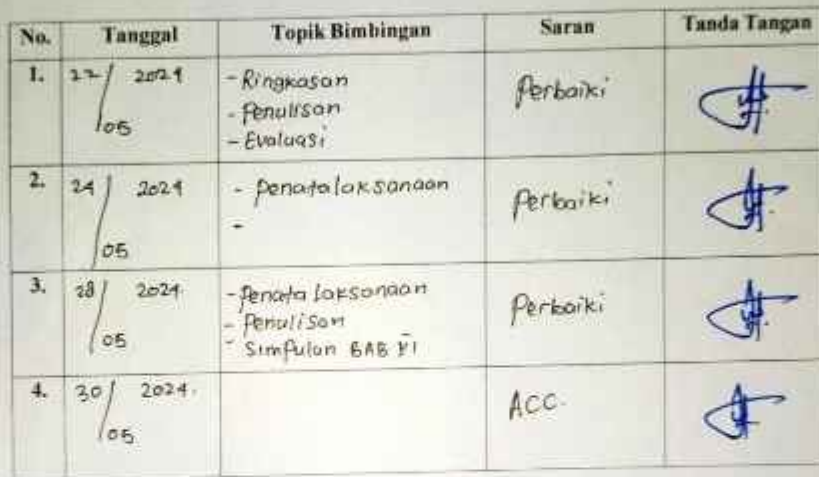 No. Tanggal Topik Bimbingan Saran Tanda Tangan
1. 22/05 2024 - Ringkasan Perbaiki
- Penulisan
- Evaluasi
2. 24/05 2024 - Penatalaksanaan Perbaiki
-
3. 28/05 2024 - Penatalaksanaan Perbaiki
- Penulisan
- Simpulan BAB VI
4. 30/05 2024. ACC.